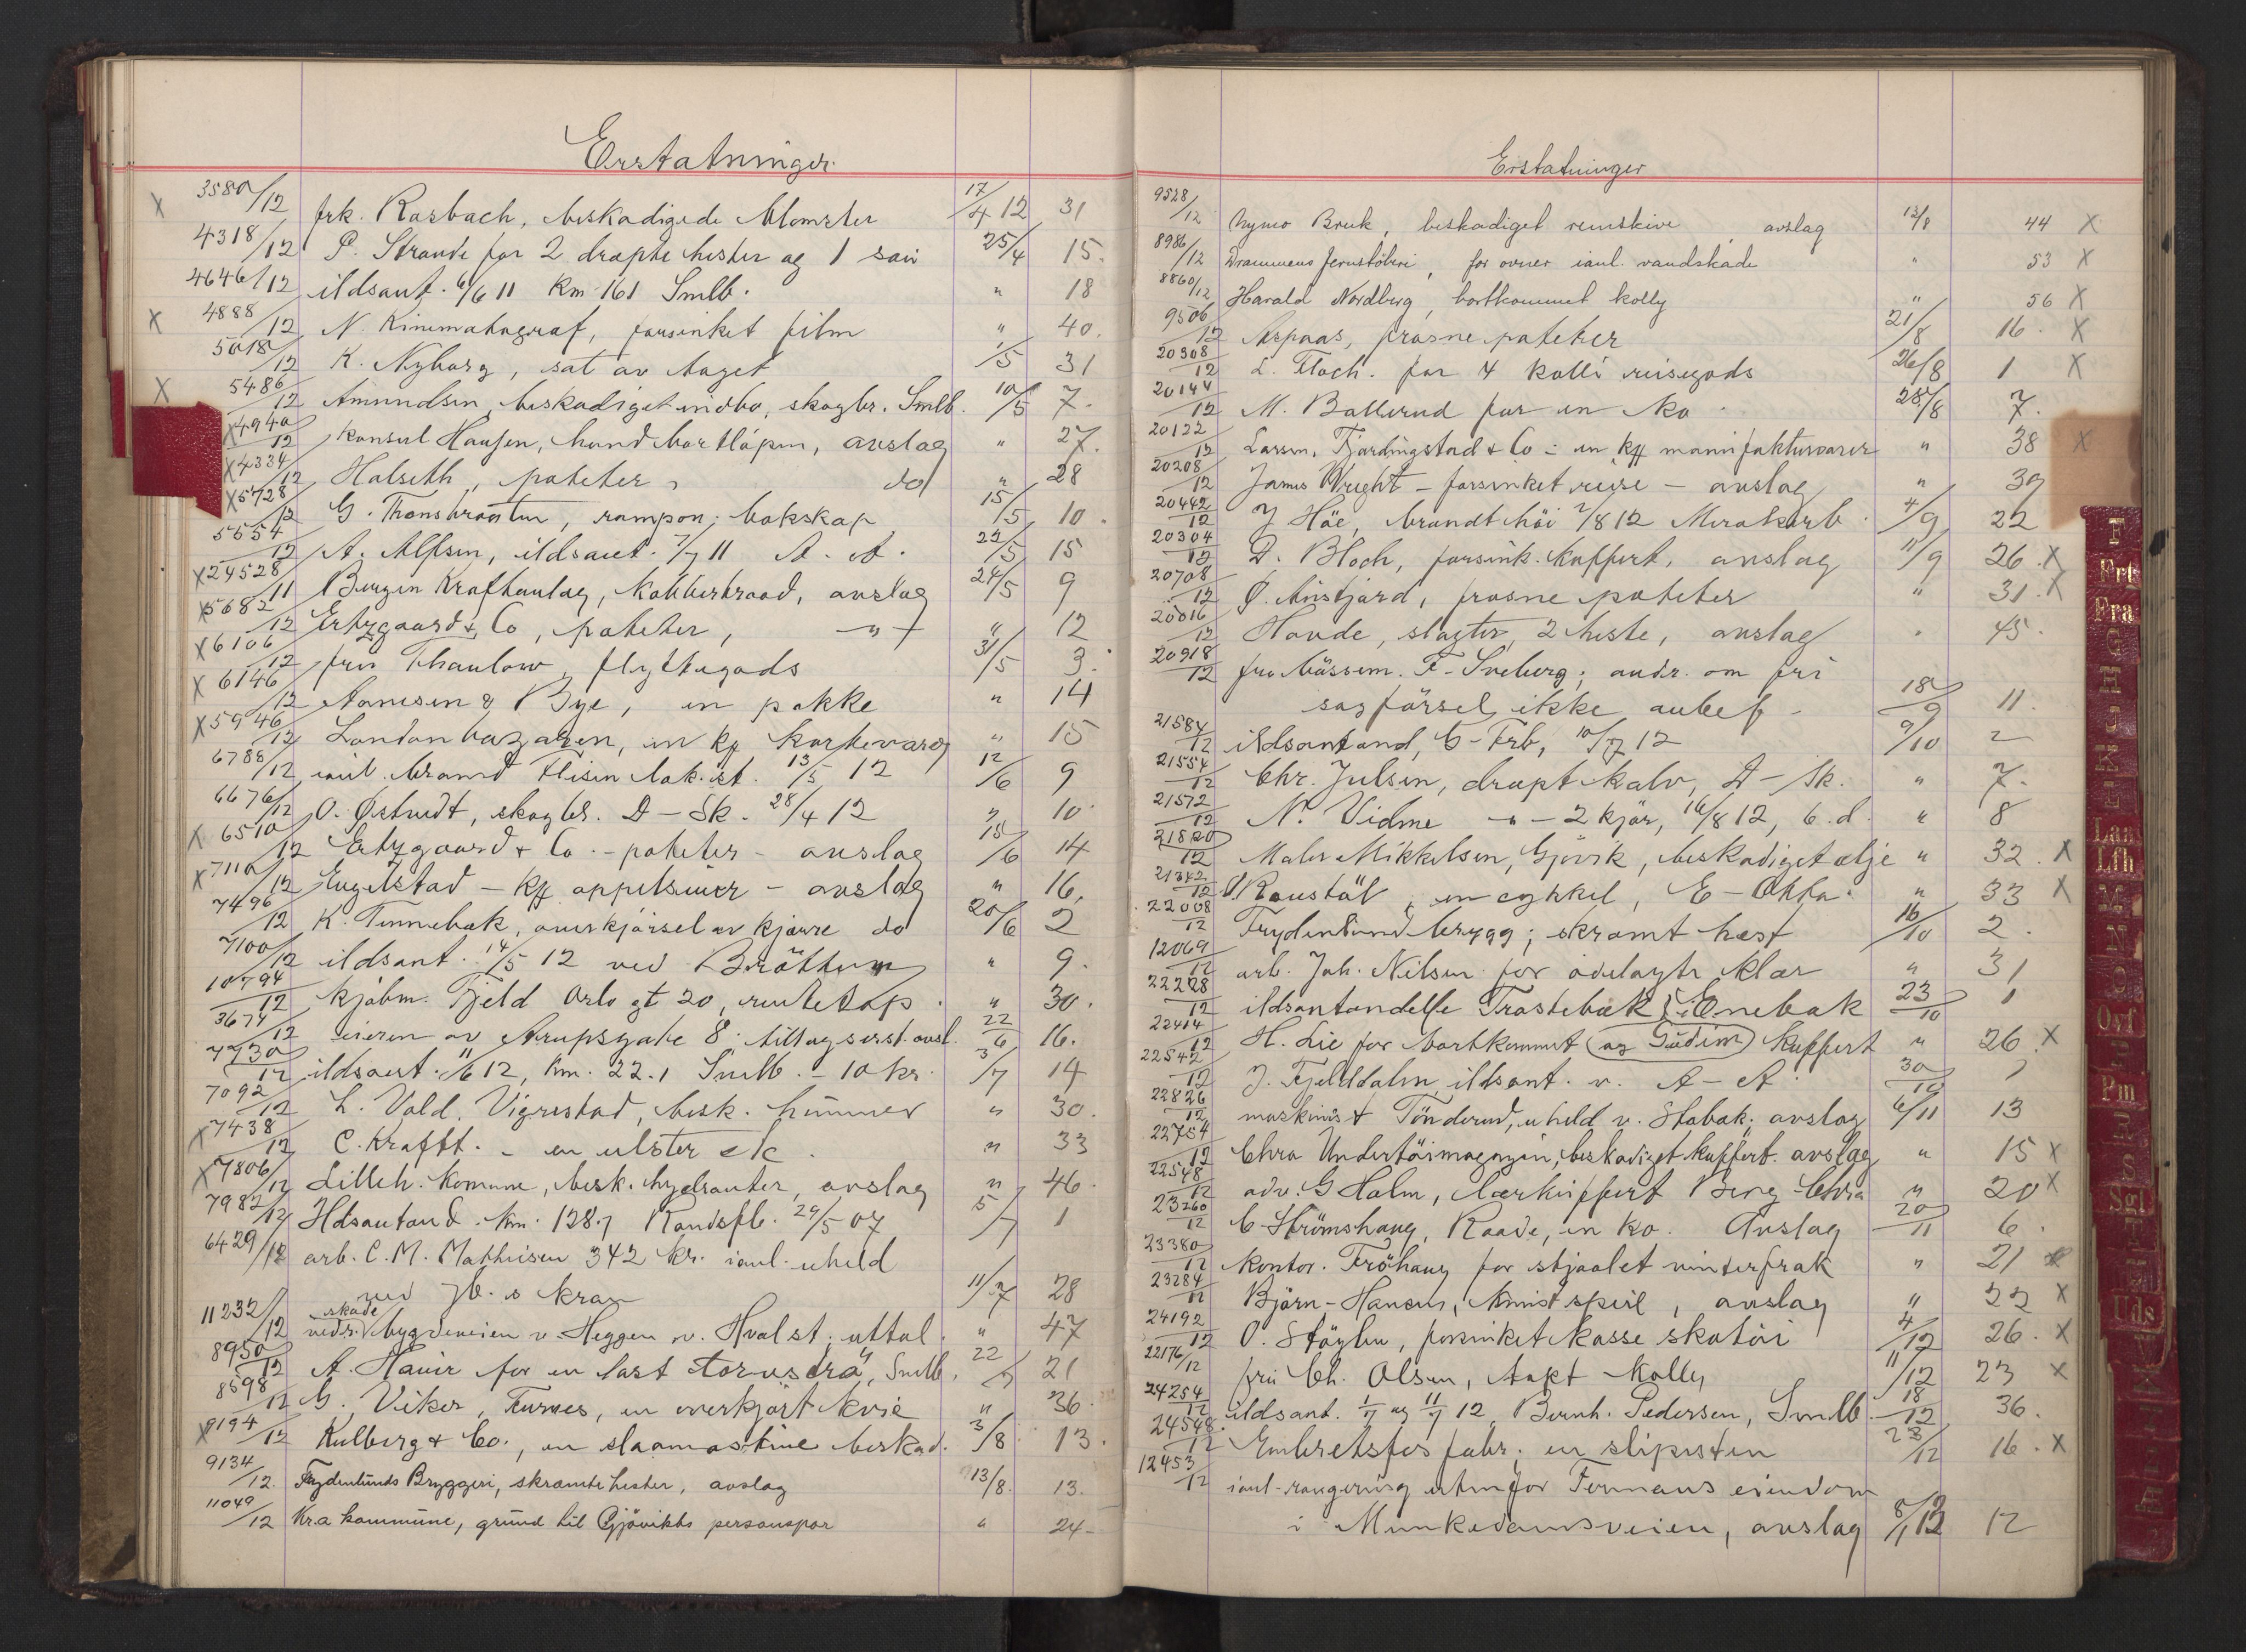 Erstatninger.
X 3580/12 frk. Rasbach, beskadigede blomster 17/4 12 31
4318/12 P. Strande for 2 dræpte hester og 1 sau 25/4 15.
4646/12 ildsant. 6/6 11 Km 161 Smlb. " 18
X 4888/12 N. Kinematograf, forsinket film " 40.
5018/12 K. Nyborg, sat av toget 1/5 31
X 5486/12 Amundsen, beskadiget indbo, skogbr. Smlb. 10/5 7.
X 4940/12 Konsul Hansen, hund bortløpen, avslag " 27.
X 4334/12 Halseth, poteter, do " 28
X 5728/12 G. bokskap 15/5 10.
5554/12 A. Alfsen, ildsant. 7/7 11 A. A. 22/5 15
X 24528/11 Bergen Kraftanlæg, kobbertraad, avslag 24/5 9
X 5682/12 Ertzgaard & Co, poteter, — " — " 12
X 6106/12 fru Thaulow, flyttegods 31/5 3.
X 6146/12 Aanesen & Bye, en pakke " 14
X 5946/12 London bazaren, en kß kortevarer " 15
6788/12 anl. brand Flisen lok. st. 13/5 12 12/6 9
6676/12 O. Østvedt, skogbr. D – Sk. 28/4 12 " 10.
X 6510/12 Ertzgaard & Co. – poteter – avslag 15/6 14
X 7110/12 Engelstad – kß appelsiner – avslag " 16.
7496/12 K. Tennebæk, overkjørsel av kjærre do 20/6 2
7100/12 ildsant. 14/5 12 ved Brøttum " 9.
10794/12 kjøbm. Fjeld Oslo gt 20, rentetap. " 30.
3674/12 eieren av Arupsgate 8. tillægserst. avsl. 22/6 16.
7730/12 ildsant. 11/6 12, Km. 22.1 Smlb. – 10 kr. 3/7 14
7092/12 L. Vold. Vigrestad, besk. hummer " 30.
X 7438/12 C. Krafft. – en ulster etc. " 33
X 7806/12 Lilleh. Komune, besk. hydranter, avslag " 46.
7982/12 Ildsantand. Km. 128.7 Randsfb. 29/5 07 5/7 1
6429/12 arb. C. M. Mathisen 342 kr. i anl. uheld
ved Jb. s kran 11/7 28
11232/12 vedr. skade bygdeveien v. Heggen v. Hval st. uttal. " 47
8950/12 A. Hauir for en last torvstrø, Smlb. 22/7 21
8598/12 G. Viker, Furnes, en overkjørt kvie " 36.
X 9194/12 Kulberg & Co., en slaamaskine beskad. 3/8 13.
9134/12. Frydenlunds Bryggeri, skræmte hester, avslag 13/8. 13.
11049/12 Kr.a kommune, grund til Gjøvikbs personspor " 24–
Erstatninger
9528/12 Nymo Bruk, beskadiget remskive, avslag 13/8 44 X
8986/12 Drammens Jernstøberi, for ovner i anl. vandskade " 53 X
8860/12 Harald Nordberg, bortkommet kolly " 56 X
9506/12 Aspaas, frosne poteter 21/8 16. X
20308/12 L. Floch. for 4 kolli reisegods 26/8 1 X
20144/12 M. Ballerud for en ko. 28/8 7.
20122/12 Larsen, Fjørdingstad & Co – en kß manifakturvarer " 38 X
20208/12 James Wright – forsinket reise – avslag " 39
20442/12 J Höe, brandt höi 2/8 12 Merakerb. 4/9 22
20304/12 D. Bloch, forsink. kuffert, avslag 11/9 26. X
20708/12 O. Austjord, frosne poteter " 31. X
20016/12 Hovde, slagter, 2 heste, avslag " 45.
20918/12 fra F. Sveberg; andr. om fri
sagførsel ikke anbef. 18/9 11.
21584/12 ildsantand, G – Frb, 10/7 12 9/10 2
21554/12 Chr. Julsen, dræpt kalv, D – Sk. " 7.
21572/12 N. Vidme — " — 2 kjør, 16/8 12, G. d. " 8
21820/12 Maler Mikkelsen, Gjøvik, beskadiget olje " 32. X
21342/12 Raustøl, en cykkel, E – Otta. " 33 X
22008/12 Frydenlund brygg; skræmt hest 16/10 2.
12069/12 arb. Joh. Nilsen for ødelagte klær " 31
22228/12 ildsantandelse Trostebæk i Enebak 23/10 1
22414/12 H. Lie for bortkommet (og Gudim) kuffert " 26. X
22542/12 J. Fjelldalen ildsant. v. A – A. 30/10 7
22826/12 maskinist Tönderud, uheld v. Stabæk; avslag 6/11 13
22754/12 Chra Undertöimagazin, beskadiget kuffert. avslag " 15 X
22548/12 adv. G Holm, lærkuffert Berg – Chra " 20 X
23260/12 C. Strømshaug, Raade, en ko. Avslag 20/11 6.
23380/12 kontor. Fröhaug for stjaalet vinterfrak " 21 X
23284/12 Björn-Hansen, Kunstspeil, avslag " 22 X
24192/12 O. Stöylen, forsinket kasse skotöi 4/12 26. X
22176/12 fru Ch. Olsen, tapt kolly 11/12 23 X
24254/12 ildsant. 1/7 og 11/7 12 Bernh. Pedersen, Smlb. 18/12 36.
24548/12 Embretsfos fabr. en slipesten 23/12 16. X
12453/12 i anl. rangering utenfor Fermans eiendom
i Munkedamsveien, avslag 8/1 13 12
F
Frt
Fra
G
H
J
K
L
Laa
Lfh
M
N
O
Osf
P
Pm
R
S
Sgl
T
U
Uds
V